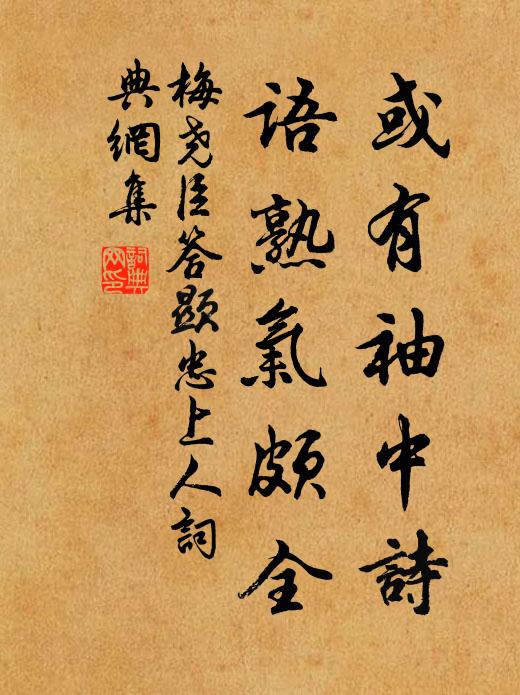 或有袖中詩
語熟氣頗全
梅堯臣答顯忠上人詞
典網集
詞典網印